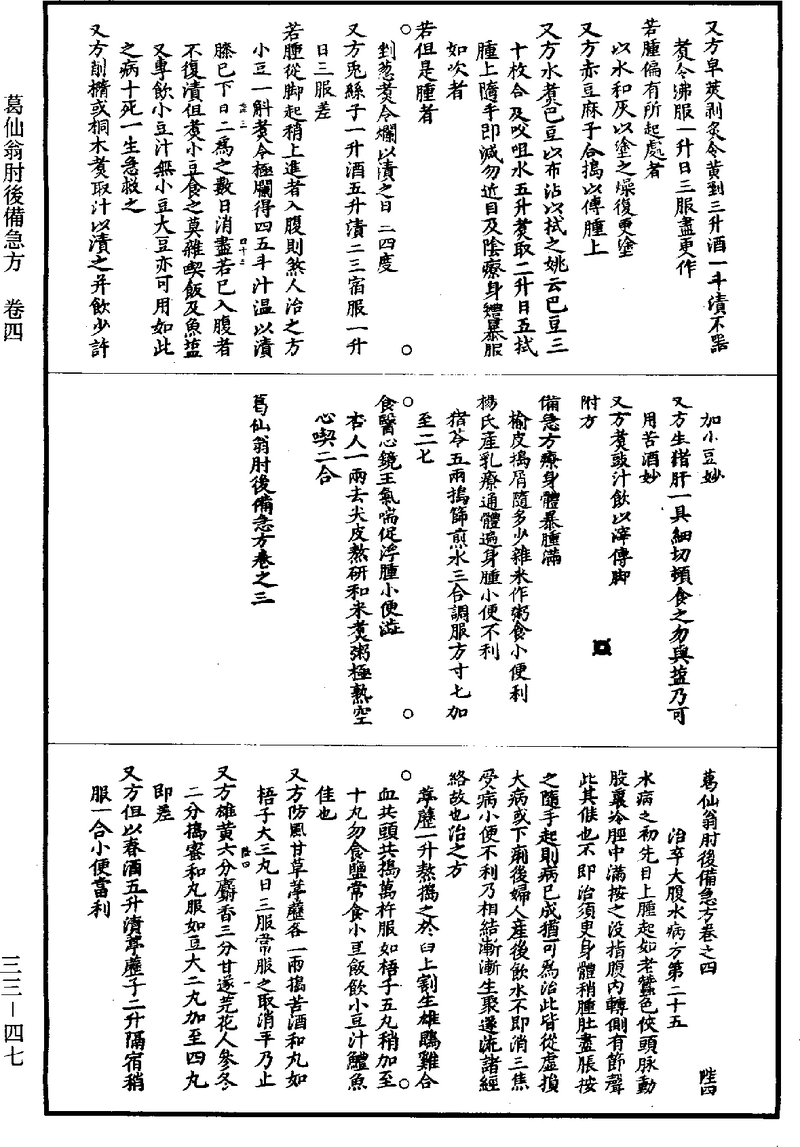 又方皁莢剥炙令黄剉三升酒一斗漬不器
煮令沸服一升日三服盡更作
若腫偏有所起處者
以水和灰以塗之燥復更塗
又方赤豆麻子合搗以傅腫上
又方水煮巴豆以布沾以拭之姚云巴豆三
十枚合皮㕮咀水五升煮取二升日五拭
腫上隨手即減勿近目及陰療身體暴腫
如吹者
若但是腫者
剉葱煮令爛以漬之日三四度
又方兎絲子一升酒五升漬二三宿服一升
日三服差
若腫從脚起稍上進者入腹則煞人治之方
小豆一斛煮令極爛得四五斗汁温以漬
膝已下日二為之數日消盡若已入腹者
不復漬但煮小豆食之莫雜喫飯及魚塩
又專飲小豆汁無小豆大豆亦可用如此
之病十死一生急救之
又方削楮或桐木煮取汁以漬之并飲少許
加小豆妙
又方生猪肝一具細切頓食之勿與塩乃可
用苦酒妙
又方煮豉汁飲以滓傅脚
附方
備急方療身體暴腫滿
榆皮搗屑隨多少雜米作粥食小便利
楊氏産乳療通體遍身腫小便不利
猪苓五兩搗篩煎水三合調服方寸匕加
至二匕
食醫心鏡主氣喘促浮腫小便澁
杏人一兩去尖皮熬研和米煮粥極熟空
心喫二合
葛仙翁肘後備急方卷之三
葛仙翁肘後備急方卷之四 陛四
治卒大腹水病方第二十五
水病之初先目上腫起如老蠶色俠頭脉動
股裏冷脛中滿按之没指腹内轉側有節聲
此其候也不即治須臾身體稍腫肚盡脹按
之隨手起則病已成猶可為治此皆從虚損
大病或下痢後婦人産後飲水不即消三焦
受病小便不利乃相結漸漸生聚遂流諸經
絡故也治之方
葶藶一升熬搗之於臼上割生雄鵾雞合
血共頭共搗萬杵服如梧子五丸稍加至
十丸勿食鹽常食小豆飯飲小豆汁鱧魚
佳也
又方防風甘草葶藶各一兩搗苦酒和丸如
梧子大三丸日三服常服之取消平乃止
又方雄黄六分麝香三分甘遂芫花人參各
二分搗蜜和丸服如豆大二丸加至四丸
即差
又方但以春酒五升漬葶藶子二升隔宿稍
服一合小便當利
葛仙翁肘後備急方 卷四
三三－四七